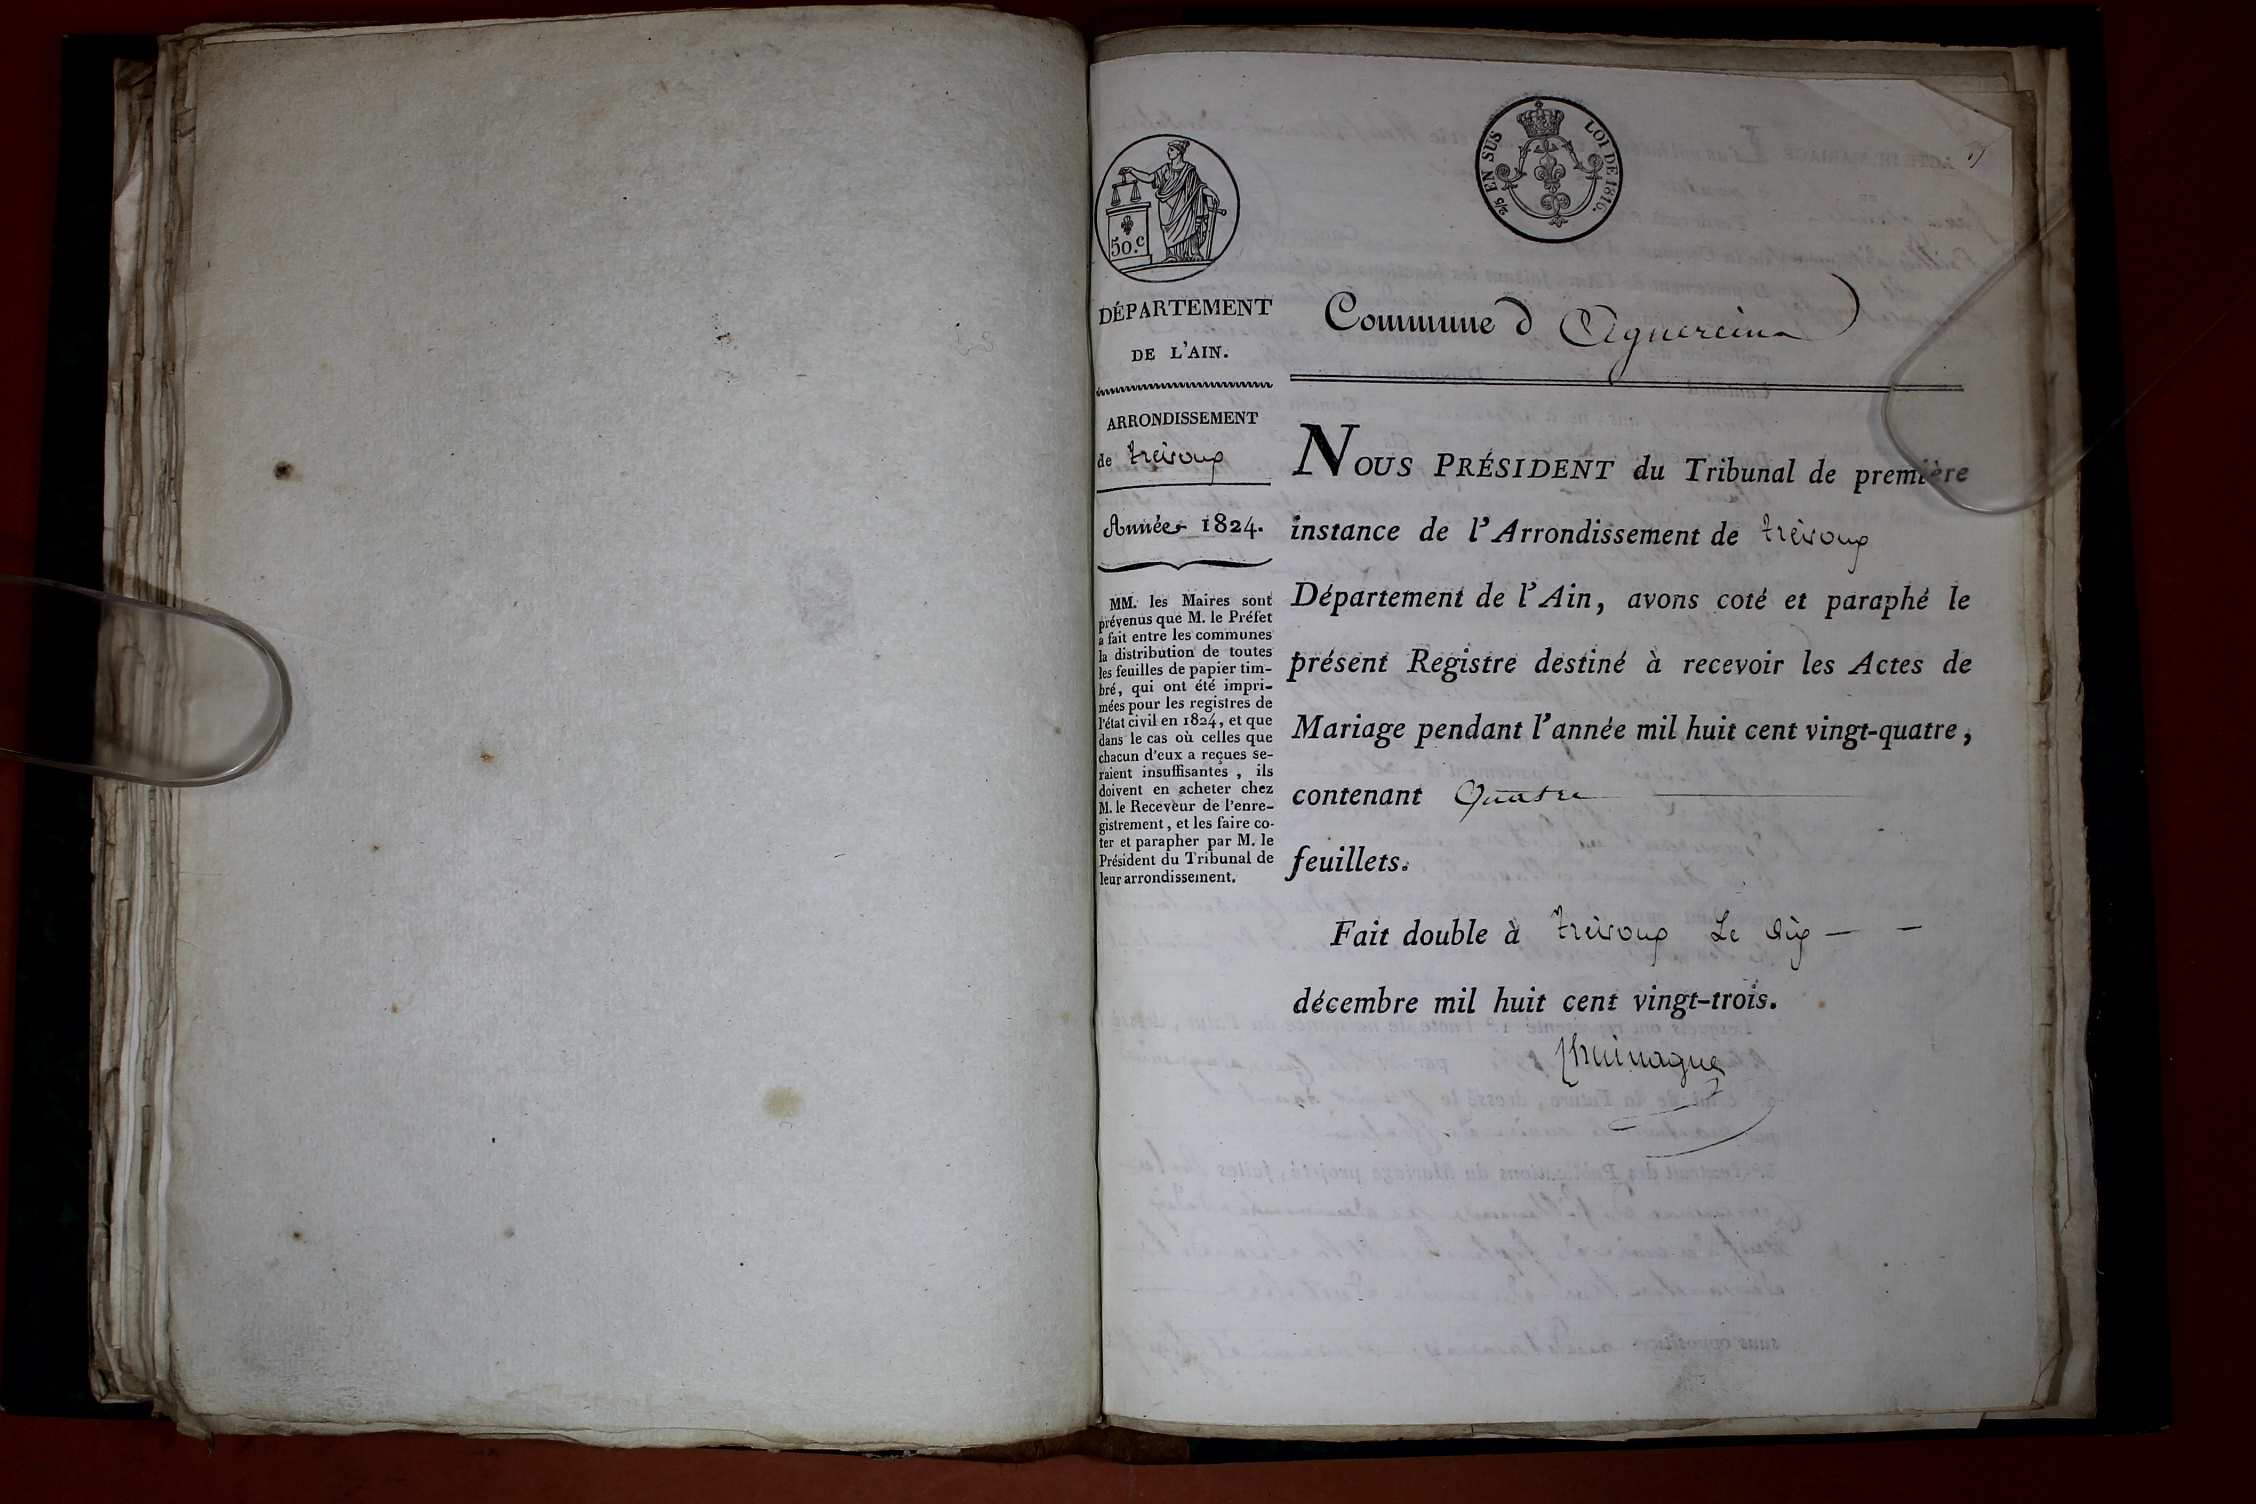 2/5 EN SUS LOI DE 1816.
50.c
DÉPARTEMENT
DE L'AIN.
ARRONDISSEMENT
de trévoux
Année 1824.
MM. les Maires sont
prévenus que M. le Préfet
a fait entre les communes
la distribution de toutes
les feuilles de papier tim-
bré, qui ont été impri-
mées pour les registres de
l'état civil en 1824, et que
dans le cas où celles que
chacun d'eux a reçues se-
raient insuffisantes, ils
doivent en acheter chez
M. le Receveur de l'enre-
gistrement, et les faire co-
ter et parapher par M. le
Président du Tribunal de
leur arrondissement.
Commune d'Agnereins
NOUS PRÉSIDENT du Tribunal de première
instance de l'Arrondissement de trévoux
Département de l'Ain, avons coté et paraphé le
présent Registre destiné à recevoir les Actes de
Mariage pendant l'année mil huit cent vingt-quatre,
contenant Quatre
feuillets.
Fait double à trévoux Le dix
décembre mil huit cent vingt-trois.